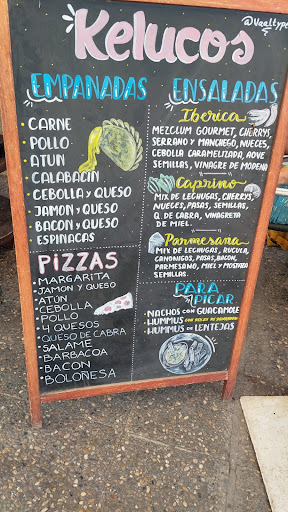 @Vaaltype
Kelucos
EMPANADAS
· CARNE
· POLLO
· ATUN
· CALABACÍN
· CEBOLLA Y QUESO
· JAMON Y QUESO
· BACON Y QUESO
· ESPINACAS
PIZZAS
· MARGARITA
· JAMON Y QUESO
· ATÚN
· CEBOLLA
· POLLO
· 4 QUESOS
· QUESO DE CABRA
· SALAME
· BARBACOA
· BACON
· BOLOÑESA
ENSALADAS
Iberica
MEZCLUM GOURMET, CHERRYS,
SERRANO Y MANCHEGO, NUECES,
CEBOLLA CARAMELIZADA, AOVE
SEMILLAS, VINAGRE DE MODENA
Caprino
MIX DE LECHUGAS, CHERRYS,
NUECES, PASAS, SEMILLAS,
Q. DE CABRA, VINAGRETA
DE MIEL.
Parmesana
MIX DE LECHUGAS, RUCULA,
CANONIGOS, PASAS, BACON,
PARMESANO, MIEL Y MOSTAZA
SEMILLAS.
PARA
PICAR
· NACHOS CON GUACAMOLE
· HUMMUS
· HUMMUS DE LENTEJAS